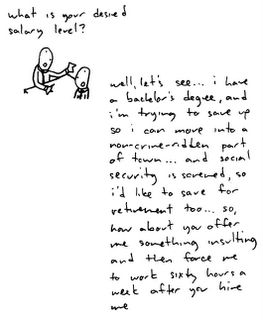 what is your desired
salary level?
well, let's see... i have
a bachelor's degree, and
i'm trying to save up
so i can move into a
non-crime-ridden part
of town... and social
security is screwed, so
i'd like to save for
retirement too... so,
how about you offer
me something insulting
and then force me
to work sixty hours a
week after you hire
me